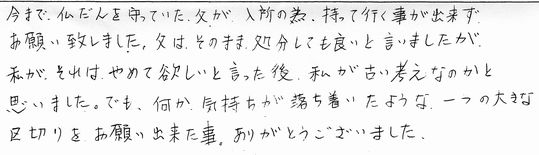 今まで、仏だんを守っていた、父が、入所の為、持って行く事が出来ず
お願い致しました。父は、そのまま処分しても良いと言いましたが、
私が、それは、やめて欲しいと言った後、私が古い考えなのかと
思いました。でも、何か、気持ちが落ち着いたような、一つの大きな
区切りをお願い出来た事。ありがとうございました、